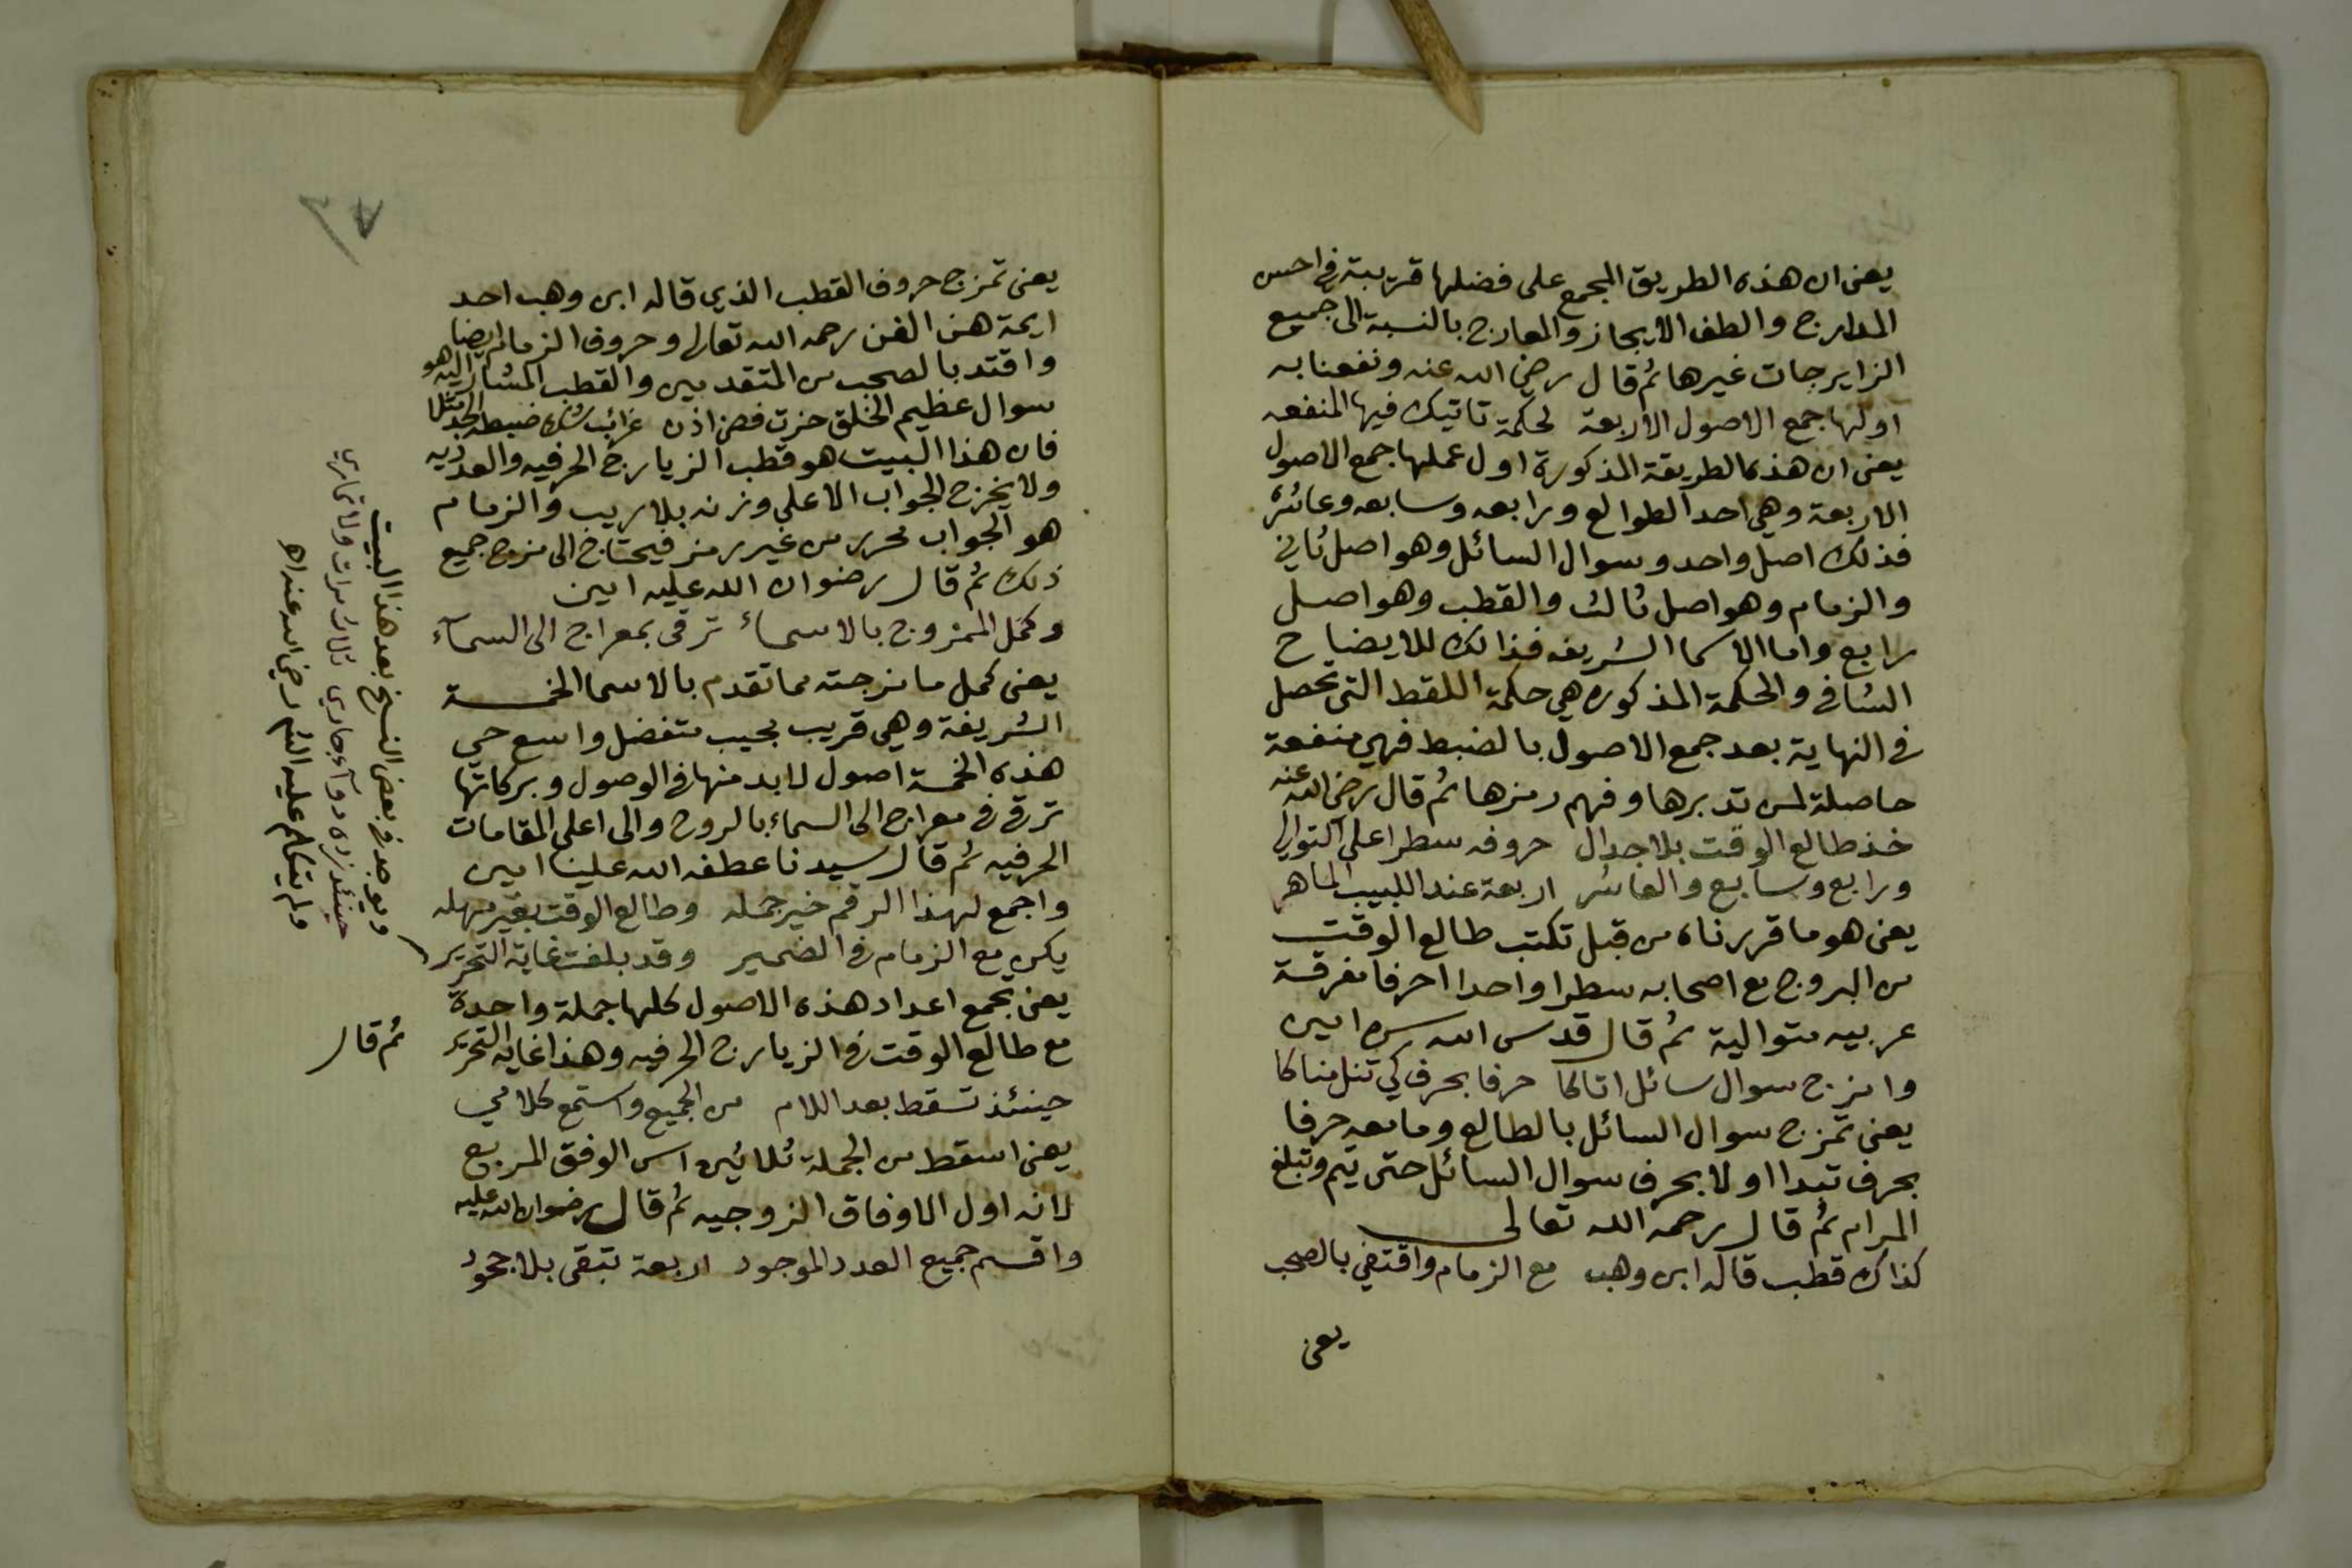 يعنى ان هذه الطريق المجمع على فضلها قريبة في احسن
المدارج والطف الايجاز والمعارج بالنسبة الى جميع
الزايرجات غيرها ثم قال رضي الله عنه ونفعنا به
اولها جمع الاصول الاربعة لحكمة تاتيك فيها المنفعه
يعنى ان هذه الطريقة المذكورة اول عملها جمع الاصول
الاربعة وهي احد الطوالع ورابعه وسابعه وعاشره
فذلك اصل واحد وسوال السائل وهو اصل ثاني
والزمام وهو اصل ثالث والقطب وهو اصل
رابع واما الاسما الشريفه فذالك للايضاح
الشافي والحكمة المذكوره هي حكمة اللقط التي تحصل
في النهاية بعد جمع الاصول بالضبط فهي منفعة
حاصلة لمن تدبرها وفهم رمزها ثم قال رضي الله عنه
خذ طالع الوقت بلا جدال حروفه سطرا على التوالي
ورابع وسابع والعاشر اربعة عند اللبيب الماهر
يعنى هو ما قررناه من قبل تكتب طالع الوقت
من البروج مع اصحابه سطرا واحدا احرفا مفرقة
عربيه متوالية ثم قال قدس الله سره امين
وامزج سوال سائل اتاكا حرفا بحرف كي تنل مناكا
يعنى تمزج سوال السائل بالطالع وما معه حرفا
بحرف تبدا اولا بحرف سوال السائل حتى يتم وتبلغ
المرام ثم قال رحمه الله تعالى
كذاك قطب قاله ابن وهب مع الزمام واقتضي بالصحب
يعنى
٢٨
يعنى تمزج حروف القطب الذي قاله ابن وهب احد
ايمة هذ الفن رحمه الله تعالى وحروف الزمام ايضا
واقتد بالصحب من المتقدمين والقطب المشار اليه هو
سوال عظيم الخلق حزت فصن اذن غرائب شك ضبطه الجد مثلا
فان هذا البيت هو قطب الزيارج الحرفيه والعدديه
ولا يخرج الجواب الا على وزنه بلا ريب والزمام
هو الجواب محرر من غير رمز فيحتاج الى مزج جميع
ذلك ثم قال رضوان الله عليه امين
وكمل الممزوج بالاسماء ترقى بمعراج الى السماء
يعنى كمل ما مزجته مما تقدم بالاسما الخمسة
الشريفة وهي قريب مجيب متفضل واسع حي
هذه الخمسة اصول لا بد منها في الوصول وبركاتها
ترقى في معراج الى السماء بالروح والى اعلى المقامات
الحرفيه ثم قال سيدنا عطفه الله علينا امين
واجمع لهذا الرقم خير جمله وطالع الوقت بغير مهله
يكن مع الزمام في الضمير وقد بلغت غاية التحرير
يعنى تجمع اعداد هذه الاصول كلها جملة واحدة
مع طالع الوقت في الزيارج الحرفيه وهذا غاية التحرير
حينئذ تسقط بعد اللام من الجميع واستمع كلامي
يعنى اسقط من الجملة ثلاثين اس الوفق المربع
لانه اول الاوفاق الزوجيه ثم قال رضوان الله عليه
واقسم جميع العدد الموجود اربعة تبقى بلا جحود
ويوجد في بعض النسخ بعد هذا البيت
حينئذ زده جادي ثلاث مرات ولا تماري
ولم يتكلم عليه الناظم رضي الله عنه اهـ
ثم قال